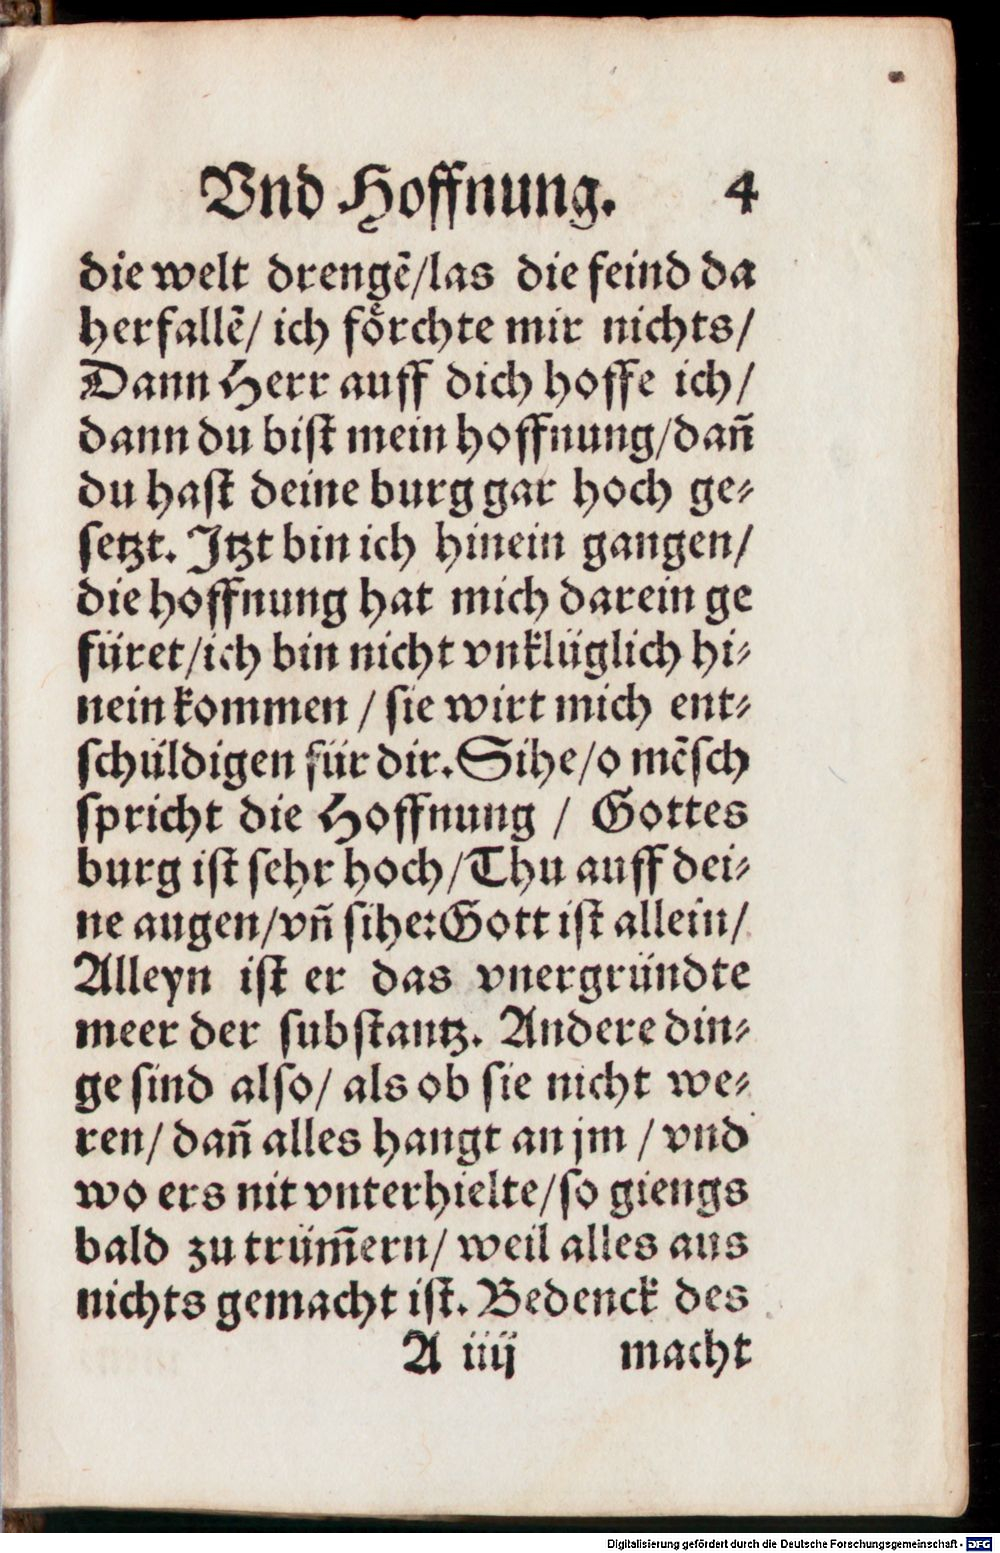 Vnd Hoffnung. 4
die welt drengē/las die feind da
herfallē/ ich foͤrchte mir nichts/
Dann Herr auff dich hoffe ich/
dann du biſt mein hoffnung/dañ
du haſt deine burg gar hoch ge⸗
ſetzt. Jtzt bin ich hinein gangen/
die hoffnung hat mich darein ge
füret/ich bin nicht vnklüglich hi⸗
nein kommen / ſie wirt mich ent⸗
ſchüldigen für dir. Sihe/o mēſch
ſpricht die Hoffnung / Gottes
burg iſt ſehr hoch/Thu auff dei⸗
ne augen/vñ ſihe:Gott iſt allein/
Alleyn iſt er das vnergründte
meer der ſubſtantz. Andere din⸗
ge ſind alſo/ als ob ſie nicht we⸗
ren/ dañ alles hangt an jm / vnd
wo ers nit vnterhielte/ſo giengs
bald zu trüm̄ern/ weil alles aus
nichts gemacht iſt. Bedenck des
A iiij macht
Digitalisierung gefördert durch die Deutsche Forschungsgemeinschaft - DFG